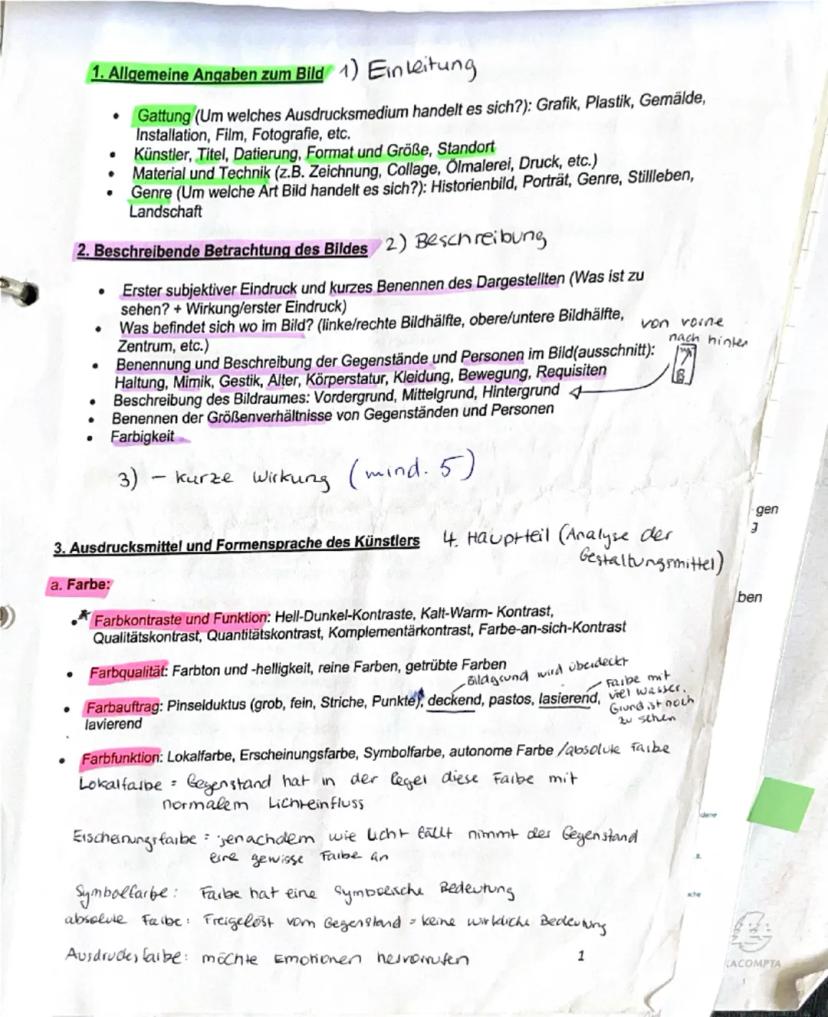 1. Allgemeine Angaben zum Bild 1) Einleitung
• Gattung (Um welches Ausdrucksmedium handelt es sich?): Grafik, Plastik, Gemälde,
Installation, Film, Fotografie, etc.
• Künstler, Titel, Datierung, Format und Größe, Standort
• Material und Technik (z.B. Zeichnung, Collage, Ölmalerei, Druck, etc.)
• Genre (Um welche Art Bild handelt es sich?): Historienbild, Porträt, Genre, Stillleben,
Landschaft
2. Beschreibende Betrachtung des Bildes 2) Beschreibung
• Erster subjektiver Eindruck und kurzes Benennen des Dargestellten (Was ist zu
sehen? + Wirkung/erster Eindruck)
• Was befindet sich wo im Bild? (linke/rechte Bildhälfte, obere/untere Bildhälfte,
Zentrum, etc.)
von vorne
nach hinten
• Benennung und Beschreibung der Gegenstände und Personen im Bild(ausschnitt):
Haltung, Mimik, Gestik, Alter, Körperstatur, Kleidung, Bewegung, Requisiten
• Beschreibung des Bildraumes: Vordergrund, Mittelgrund, Hintergrund
• Benennen der Größenverhältnisse von Gegenständen und Personen
• Farbigkeit
3) - kurze Wirkung (mind. 5)
gen
g
ben
3. Ausdrucksmittel und Formensprache des Künstlers 4. Hauptteil (Analyse der
Gestaltungsmittel)
a. Farbe:
• * Farbkontraste und Funktion: Hell-Dunkel-Kontraste, Kalt-Warm- Kontrast,
Qualitätskontrast, Quantitätskontrast, Komplementärkontrast, Farbe-an-sich-Kontrast
• Farbqualität: Farbton und -helligkeit, reine Farben, getrübte Farben
Bildgrund wird überdeckt
• Farbauftrag: Pinselduktus (grob, fein, Striche, Punkte), deckend, pastos, lasierend,
lavierend
Farbe mit
viel Wasser.
Grund ist noch
zu sehen
• Farbfunktion: Lokalfarbe, Erscheinungsfarbe, Symbolfarbe, autonome Farbe /absolute Farbe
Lokalfarbe = Gegenstand hat in der Regel diese Farbe mit
normalem Lichteinfluss
Erscheinungsfarbe = jenachdem wie Licht fällt nimmt der Gegenstand
eine gewisse Farbe an
Symbolfarbe: Farbe hat eine Symbolische Bedeutung
absolute Farbe: Freigelöst vom Gegenstand = keine wirkliche Bedeutung
Ausdrucksfarbe: möchte Emotionen hervorrufen
1